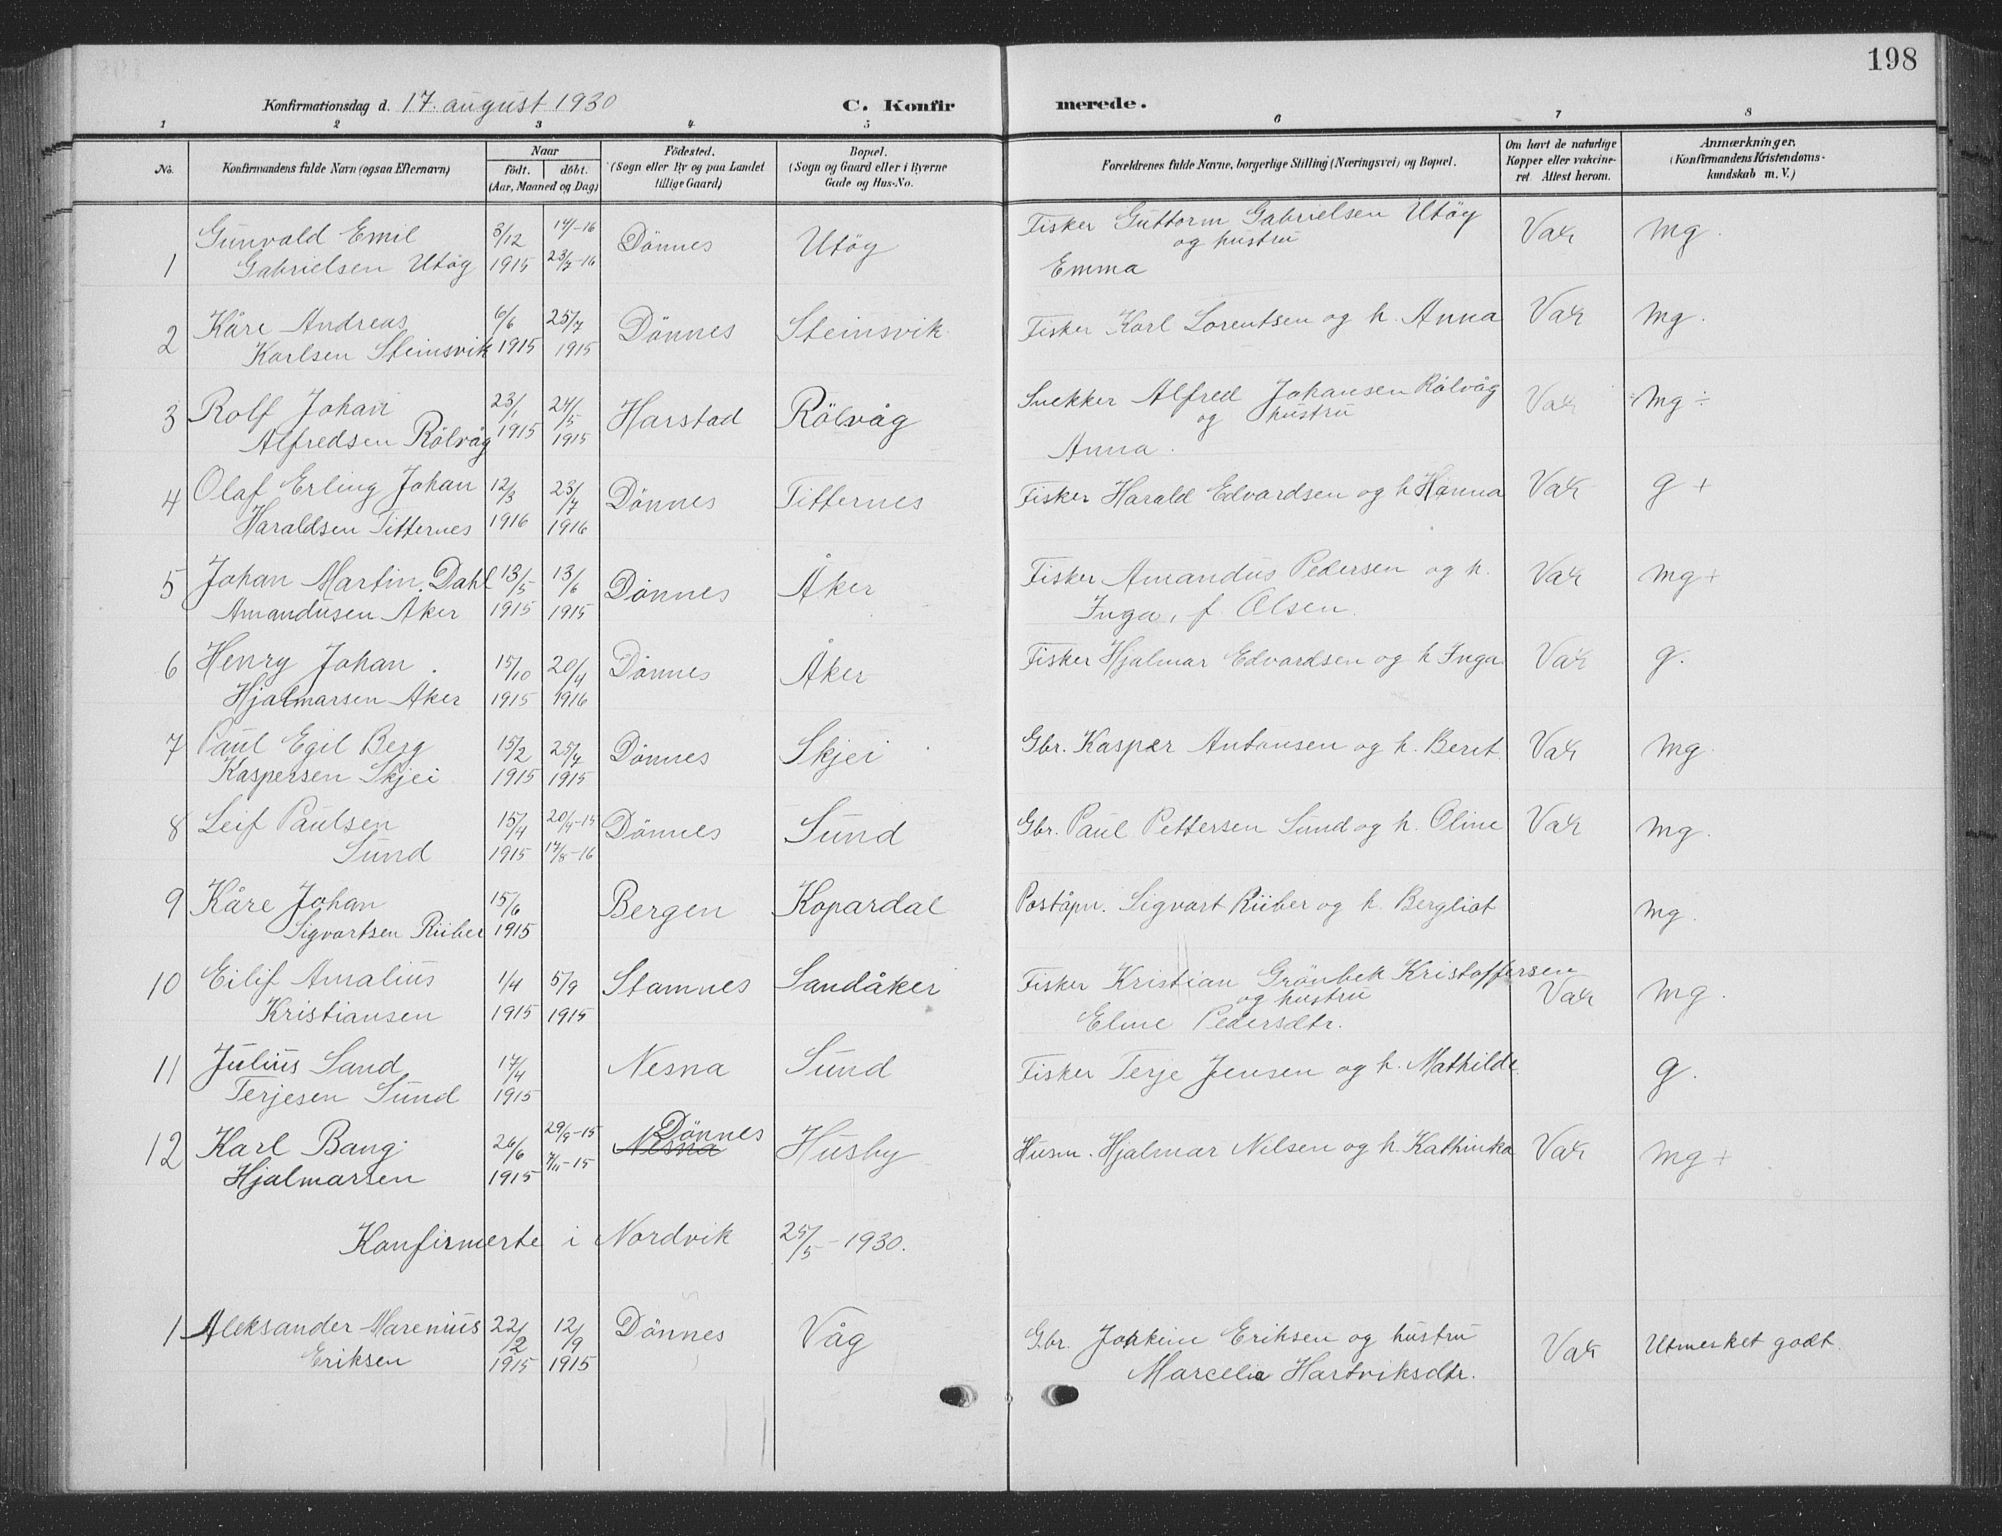 198
Konfirmationsdag d. 17. august 1930 C. Konfirmerede.
1 2 3 4 5 6 7 8
No. Konfirmandens fulde Navn (ogsaa Efternavn) Naar født. døbt. (Aar, Maaned og Dag) Födested. (Sogn eller By og paa Landet tillige Gaard) Bopæl. (Sogn og Gaard eller i Byerne Gade og Hus-No. Forældrenes fulde Navne, borgerlige Stilling (Næringsvei) og Bopæl. Om havt de naturlige Kopper eller vakcineret Attest herom. Anmærkninger, (Konfirmandens Kristendomskundskab m. V.)
1 Gunvald Emil Gabrielsen Utöy 3/12 1915 23/7-16 Dönnes Utöy Fisker Guttorm Gabrielsen Utöy og hustru Emma Vak mg.
2 Kåre Andreas Karlsen Steinsvik 6/6 1915 25/7 1915 Dönnes Steinsvik Fisker Karl Lorentsen og h. Anna Vak mg.
3 Rolf Johan Alfredsen Rölvåg 23/1 1915 24/5 1915 Harstad Rölvåg Snekker Alfred Johansen Rölvåg og hustru Anna. Vak mg ÷
4 Olaf Erling Johan Haraldsen Titternes 12/3 1916 23/7 1916 Dönnes Titternes Fisker Harald Edvardsen og h Hanna Vak g +
5 Johan Martin Dahl Amandusen Åker 13/5 1915 13/6 1915 Dönnes Åker Fisker Amandus Pedersen og h. Inga, f. Olsen. Vak mg +
6 Henry Johan Hjalmarsen Åker 15/10 1915 20/4 1916 Dönnes Åker Fisker Hjalmar Edvardsen og h Inga Vak g.
7 Paul Egil Berg Kaspersen Skjei 15/2 1915 25/4 1915 Dönnes Skjei Gbr. Kasper Antonsen og h. Beret Vak mg.
8 Leif Paulsen Sund 15/4 1915 17/8-16 Dönnes Sund Gbr. Paul Pettersen Sund og h. Oline Vak mg.
9 Kåre Johan Sigvartsen Riiber 15/6 1915 Bergen Kopardal Poståpn. Sigvart Riiber og h. Bergliot mg.
10 Eilif Amalius Kristiansen 1/4 1915 5/9 1915 Stamnes Sandåker Fisker Kristian Grönbek Kristoffersen og hustru Eline Pedersdtr. Vak mg.
11 Julius Sand Terjesen Sund 17/4 1915 Nesna Sund Fisker Terje Jensen og h. Mathilde g.
12 Karl Bang Hjalmarsen 26/6 1915 29/9-15 7/11-15 Dönnes Nesna Husby Husm. Hjalmar Nilsen og h. Kathinka Vak mg +
Konfirmerte i Nordvik 25/5-1930.
1 Aleksander Marenius Eriksen 22/2 1915 12/9 1915 Dönnes Våg Gbr. Eriksen og hustru Marcelie Hartviksdtr. Vak Utmerket godt.